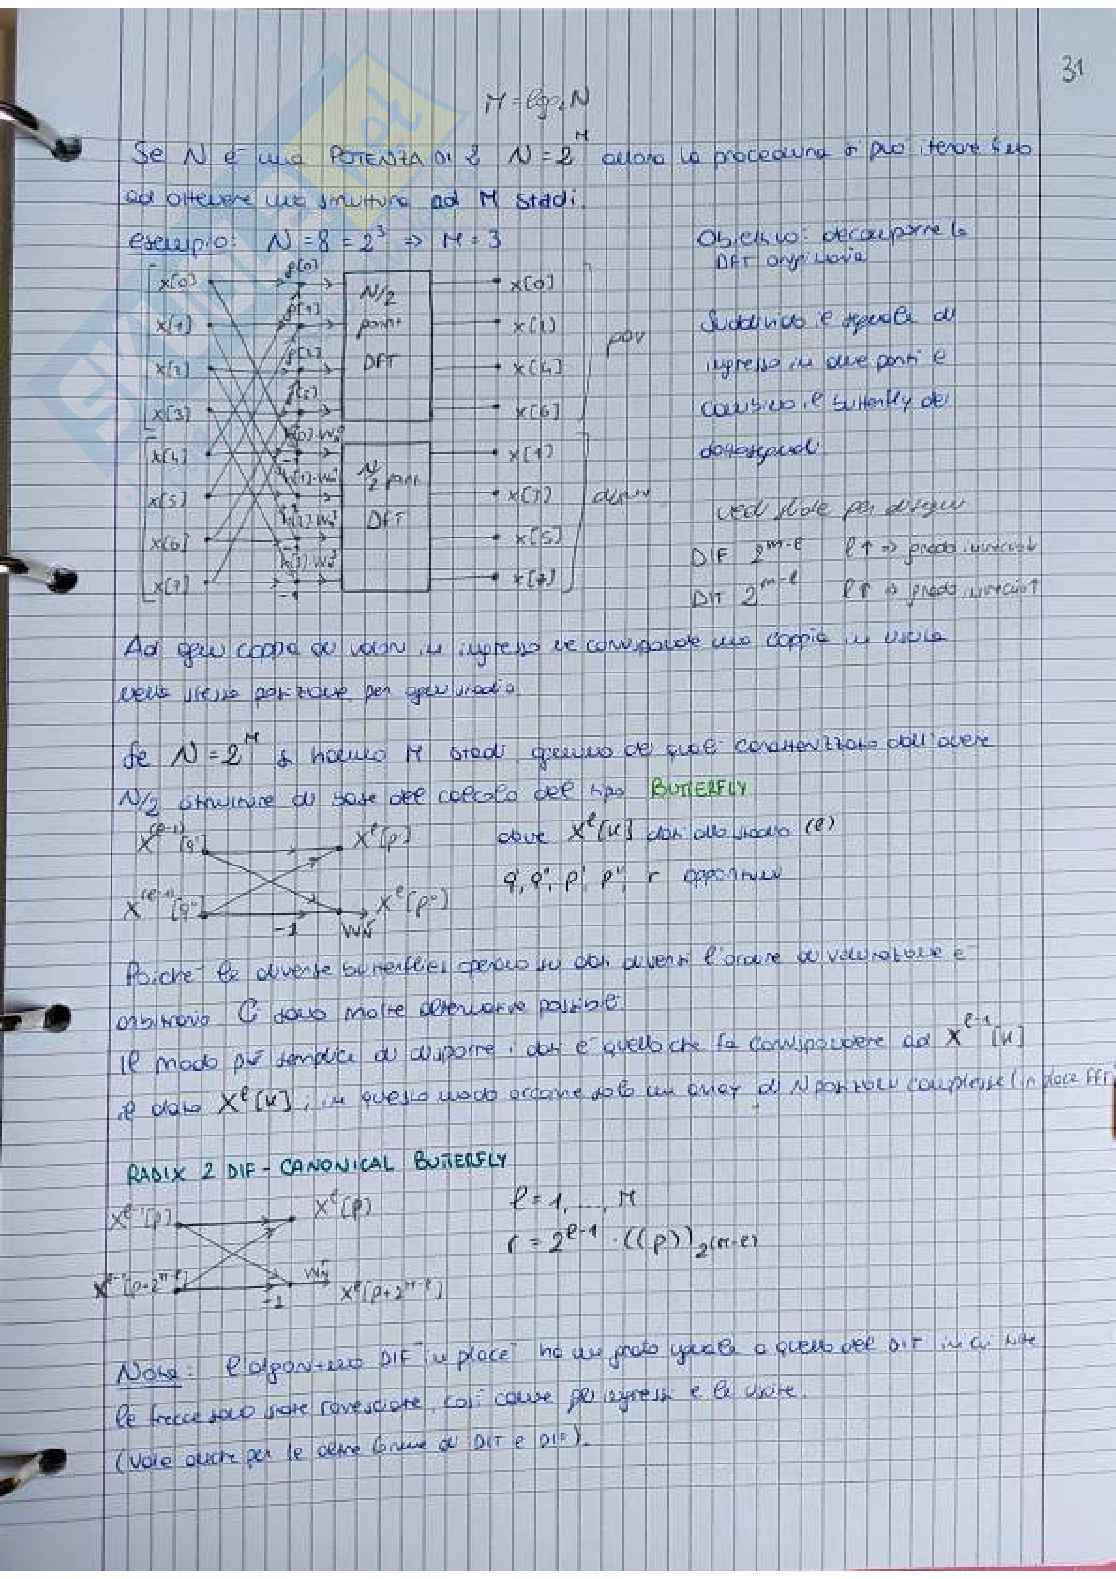 31
M = log₂ N
Se N è una POTENZA DI 2 N = 2^M allora la procedura si può iterare fino
ad ottenere una struttura ad M stadi.
esempio: N = 8 = 2³ ⇒ M = 3
Obiettivo: decomporre la
DFT originaria
x[0] g[0] N/2 X[0]
x[1] g[1] point X(1)
x[2] g[2] DFT X[4]
x[3] X[6]
pari
x[4] h[0]·W X(1)
x[5] h[1]·W N/2 point
x[6] h[2]·W DFT X[5]
x[7] h[3]·W X[7]
-1
ingresso in due parti e
vedi slide per disegni
DIF 2^m-l l↑ ⇒
DIT 2^m-l l↑ ⇒
Ad ogni coppia di valori in ingresso ne corrisponde una coppia in uscita
nella stessa posizione per ogni stadio.
Se N = 2^M si hanno M stadi ognuno dei quali caratterizzato dall'avere
N/2 strutture di base del calcolo del tipo BUTTERFLY
X^(l-1)[q'] X^l(p) dove X^l[k] dati allo stadio (l)
q', q'', p', p'', r opportuni
X^(l-1)[q''] -1 X^l[p'']
Poiché le diverse butterflies operano su dati diversi l'ordine di valutazione è
arbitrario. Ci sono molte alternative possibili.
Il modo più semplice di disporre i dati è quello che fa corrispondere ad X^l-1[k]
il dato X^l[k], in questo modo occorre solo un array di N posizioni complesse (in place FFT
RADIX 2 DIF - CANONICAL BUTTERFLY
X^l-1[p] X^l(p) l = 1, ..., M
r = 2^l-1 · ((p))_2(m-l)
X^l-1[p+2^m-l] -1 X^l[p+2^m-l]
Nota: l'algoritmo DIF "in place" ha un grafo uguale a quello del DIT in cui tutte
le frecce sono state rovesciate, così come gli ingressi e le uscite.
(Vale anche per le altre forme di DIT e DIF).